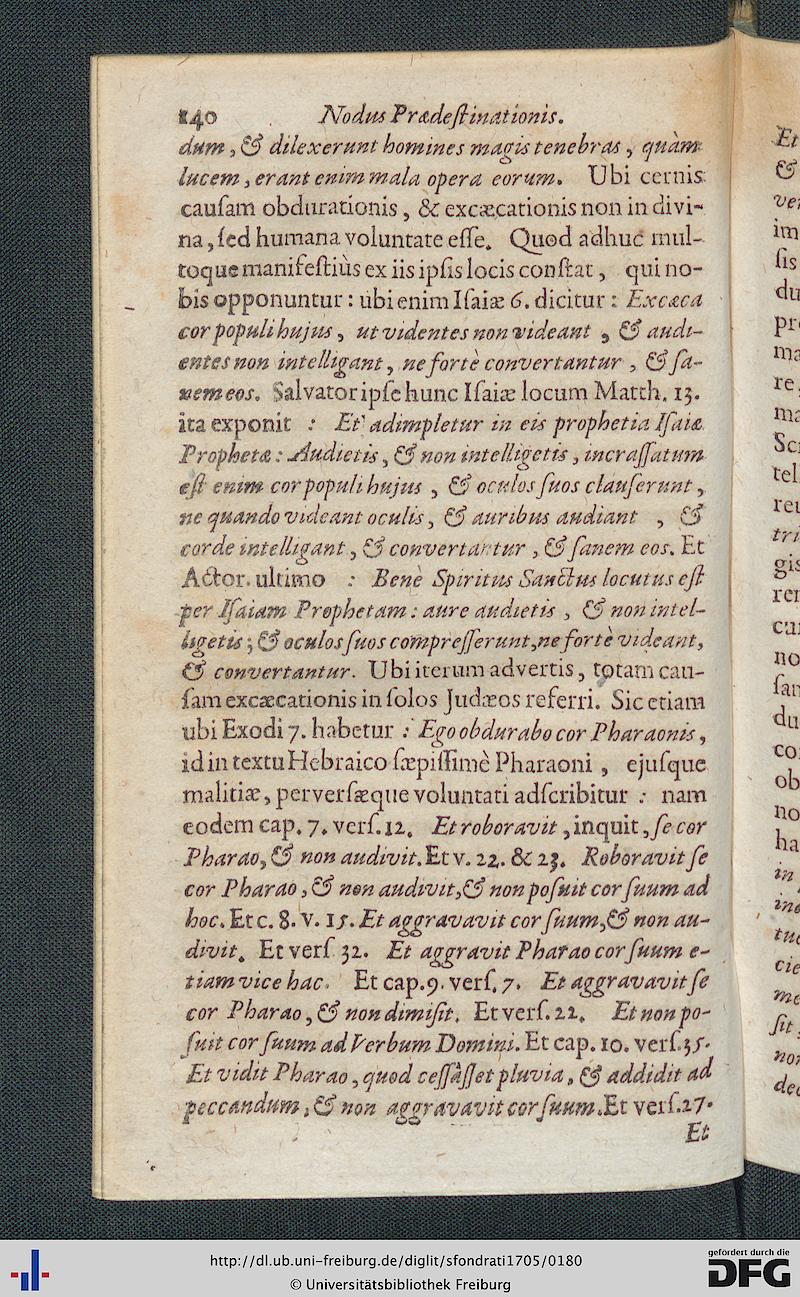 140 Nodus Prædeſtinationis.
dum, & dilexerunt homines magis tenebras, quàm
lucem, erant enim mala opera eorum. Ubi cernis
cauſam obdurationis, & excæcationis non in divi-
na, ſed humana voluntate eſſe. Quod adhuc mul-
toque manifeſtiùs ex iis ipſis locis conſtat, qui no-
bis opponuntur: ubi enim Iſaiæ 6. dicitur: Excæca
cor populi hujus, ut videntes non videant, & audi-
entes non intelligant, ne fortè convertantur, & ſa-
nem eos. Salvator ipſe hunc Iſaiæ locum Matth. 13.
ita exponit: Et adimpletur in eis prophetia Iſaiæ
Prophetæ: Audietis, & non intelligetis, incraſſatum
eſt enim cor populi hujus, & oculos ſuos clauſerunt,
ne quando videant oculis, & auribus audiant, &
corde intelligant, & convertantur, & ſanem eos. Et
Actor. ultimo: Benè Spiritus Sanctus locutus eſt
per Iſaiam Prophetam: aure audietis, & non intel-
ligetis; & oculos ſuos compreſſerunt, ne fortè videant,
& convertantur. Ubi iterum advertis, totam cau-
ſam excæcationis in ſolos Judæos referri. Sic etiam
ubi Exodi 7. habetur: Ego obdurabo cor Pharaonis,
id in textu Hebraico ſæpiſſimè Pharaoni, ejuſque
malitiæ, perverſæque voluntati adſcribitur: nam
eodem cap. 7. verſ. 12. Et roboravit, inquit, ſe cor
Pharao, & non audivit. Et v. 22. & 23. Roboravit ſe
cor Pharao, & non audivit, & non poſuit cor ſuum ad
hoc. Et c. 8. v. 15. Et aggravavit cor ſuum, & non au-
divit. Et verſ 32. Et aggravit Pharao cor ſuum e-
tiam vice hac. Et cap. 9. verſ. 7. Et aggravavit ſe
cor Pharao, & non dimiſit. Et verſ. 22. Et non po-
ſuit cor ſuum ad Verbum Domini. Et cap. 10. verſ. 35.
Et vidit Pharao, quod ceſſàſſet pluvia, & addidit ad
peccandum, & non aggravavit cor ſuum. Et verſ. 27.
Et
http://dl.ub.uni-freiburg.de/diglit/sfondrati1705/0180
© Universitätsbibliothek Freiburg
gefördert durch die
DFG